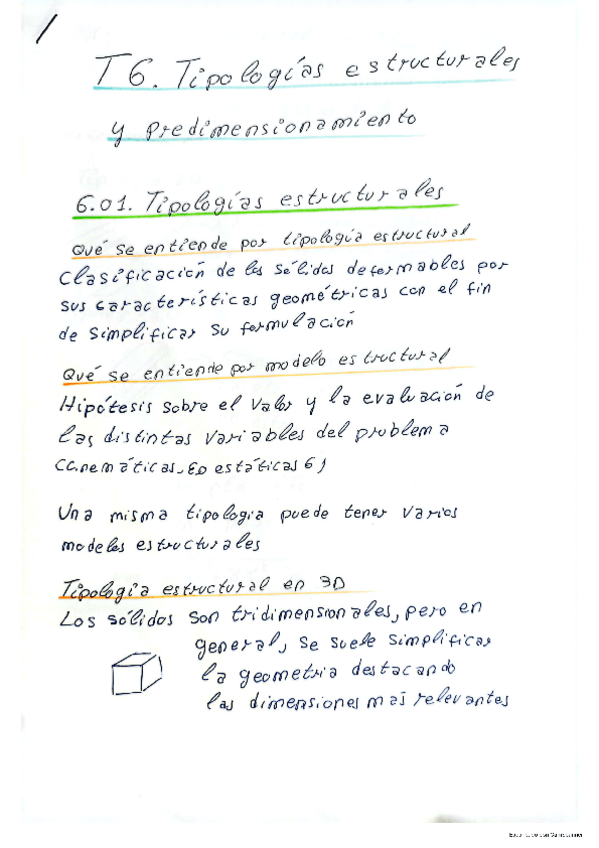 T6. Tipologías estructurales
y predimensionamiento
6.01. Tipologías estructurales
Qué se entiende por tipología estructural
Clasificación de los sólidos deformables por
sus características geométricas con el fin
de simplificar su formulación
Qué se entiende por modelo estructural
Hipótesis sobre el valor y la evaluación de
las distintas variables del problema
Una misma tipología puede tener varios
modelos estructurales
Tipología estructural en 3D
Los sólidos son tridimensionales, pero en
general, se suele simplificar
la geometría destacando
las dimensiones más relevantes